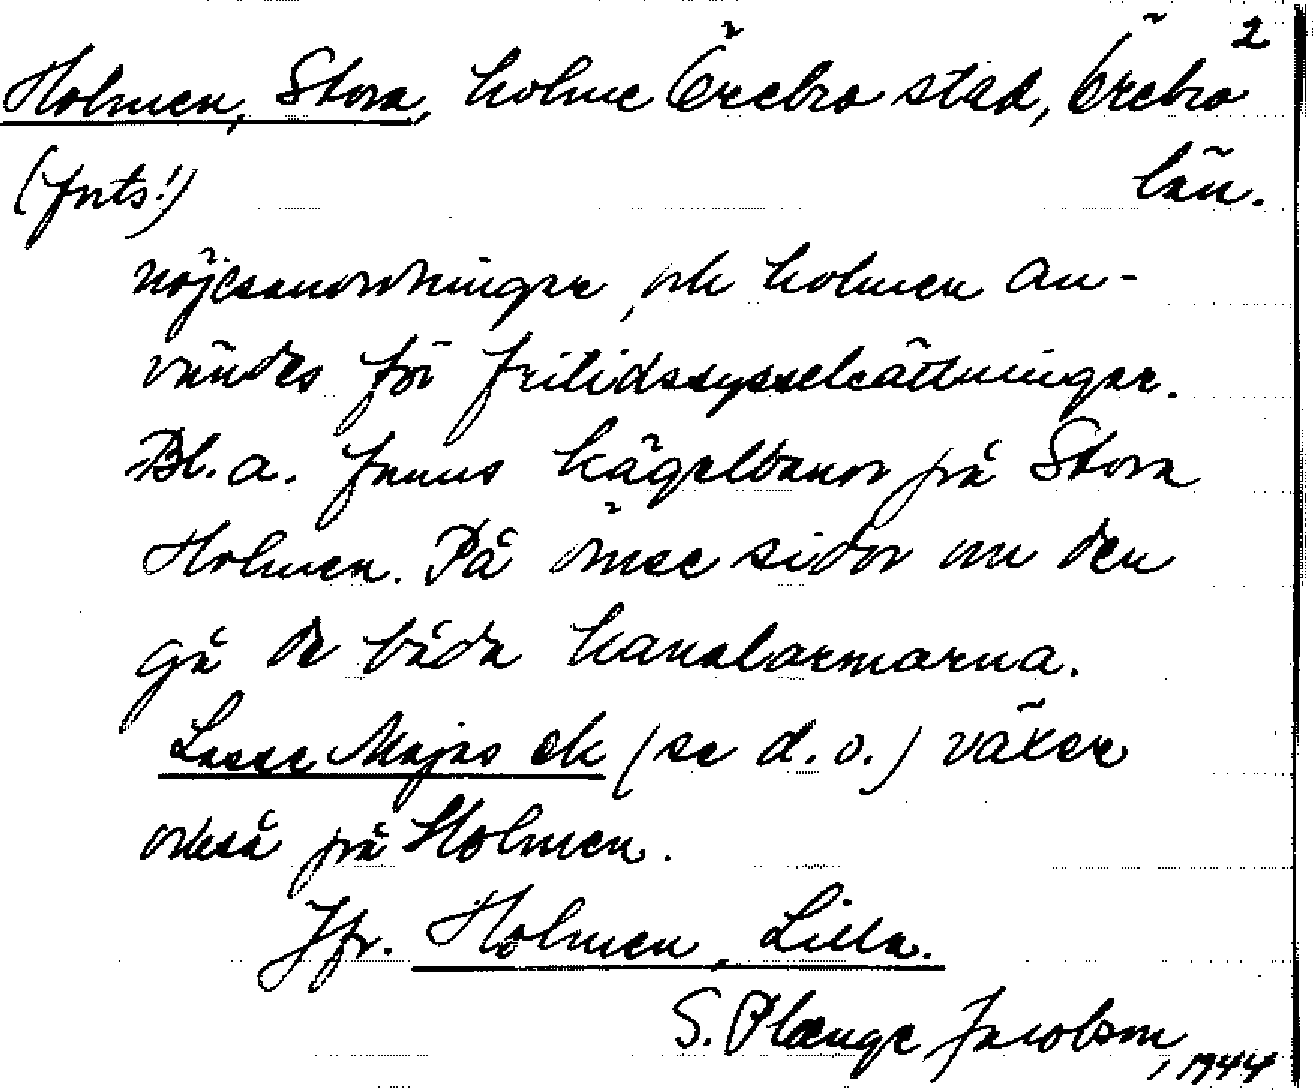 2
Holmen, Stora, holme Örebro stad, Örebro
(forts!) län.
nöjesanordningar, och holmen an-
vändes för fritidssysselsättningar.
Bl. a. funns kägelbanor på Stora
Holmen. På ömse sidor om den
gå de båda kanalarmarna.
Lasse Majas ek (se d. o.) växer
också på Holmen.
Jfr. Holmen, Lilla.
S. Plænge Jacobson, 1944